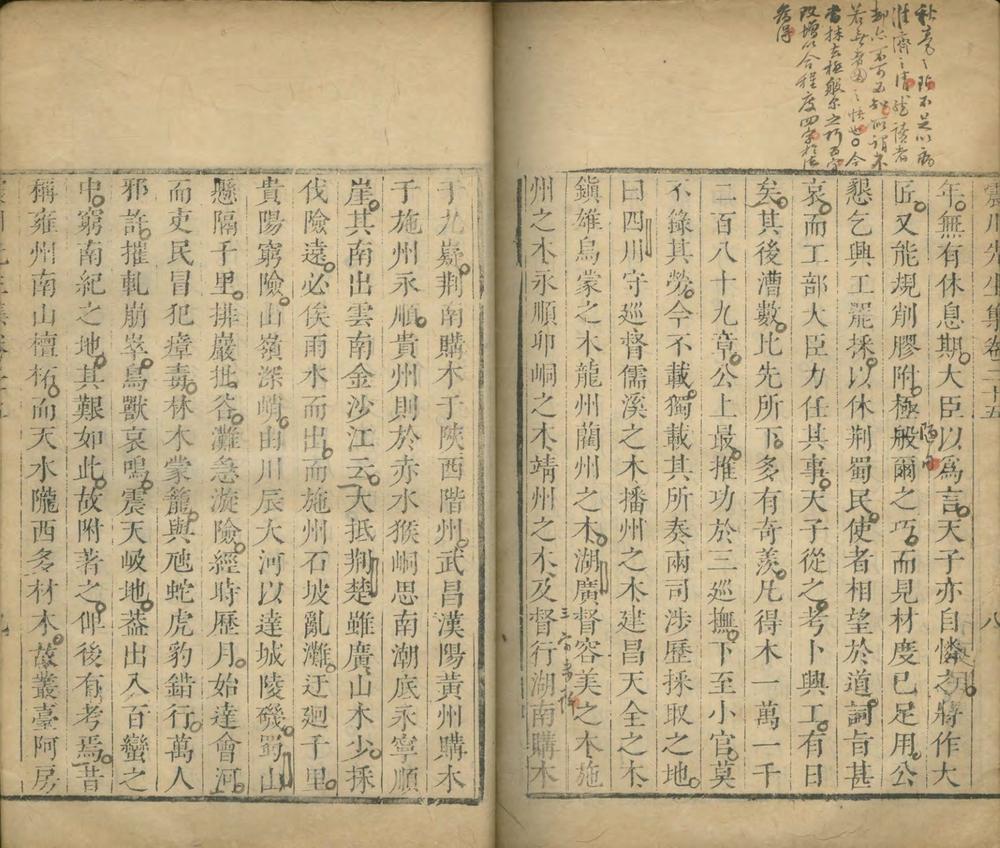 震川先生集卷二十五
八
年無有休息期大臣以爲言天子亦自憐之將作大
匠又能規削膠附極般爾之巧而見材度已足用公
懇乞興工罷採以休荆蜀民使者相望於道詞旨甚
哀而工部大臣力任其事天子從之考卜興工有日
矣其後漕數比先所下多有奇羨凡得木一萬一千
二百八十九章公上最推功於三巡撫下至小官莫
不錄其勞今不載獨載其所奏兩司涉歷採取之地
曰四川守巡督儒溪之木播州之木建昌天全之木
鎮雄烏蒙之木龍州藺州之木湖廣督容美之木施
州之木永順卯峒之木靖州之木及督行湖南購木
于九嶷荆南購木于陝西階州武昌漢陽黃州購木
于施州永順貴州則於赤水猴峒思南潮底永寧順
崖其南出雲南金沙江云大抵荆楚雖廣山木少採
伐險遠必俟雨水而出而施州石坡亂灘迂廻千里
貴陽窮險山嶺深峭由川辰大河以達城陵磯蜀山
懸隔千里排巖批谷灘急漩險經時歷月始達會河
而吏民冒犯瘴毒林木蒙籠與虺蛇虎豹錯行萬人
邪許摧軋崩崒鳥獸哀鳴震天岋地葢出入百蠻之
中窮南紀之地其艱如此故附著之俾後有考焉昔
稱雍州南山檀柘而天水隴西多材木故叢臺阿房
秋毫之玷不足以病
淮濟之清然讀者
却亦不可不知所謂不
改增以合程度四字